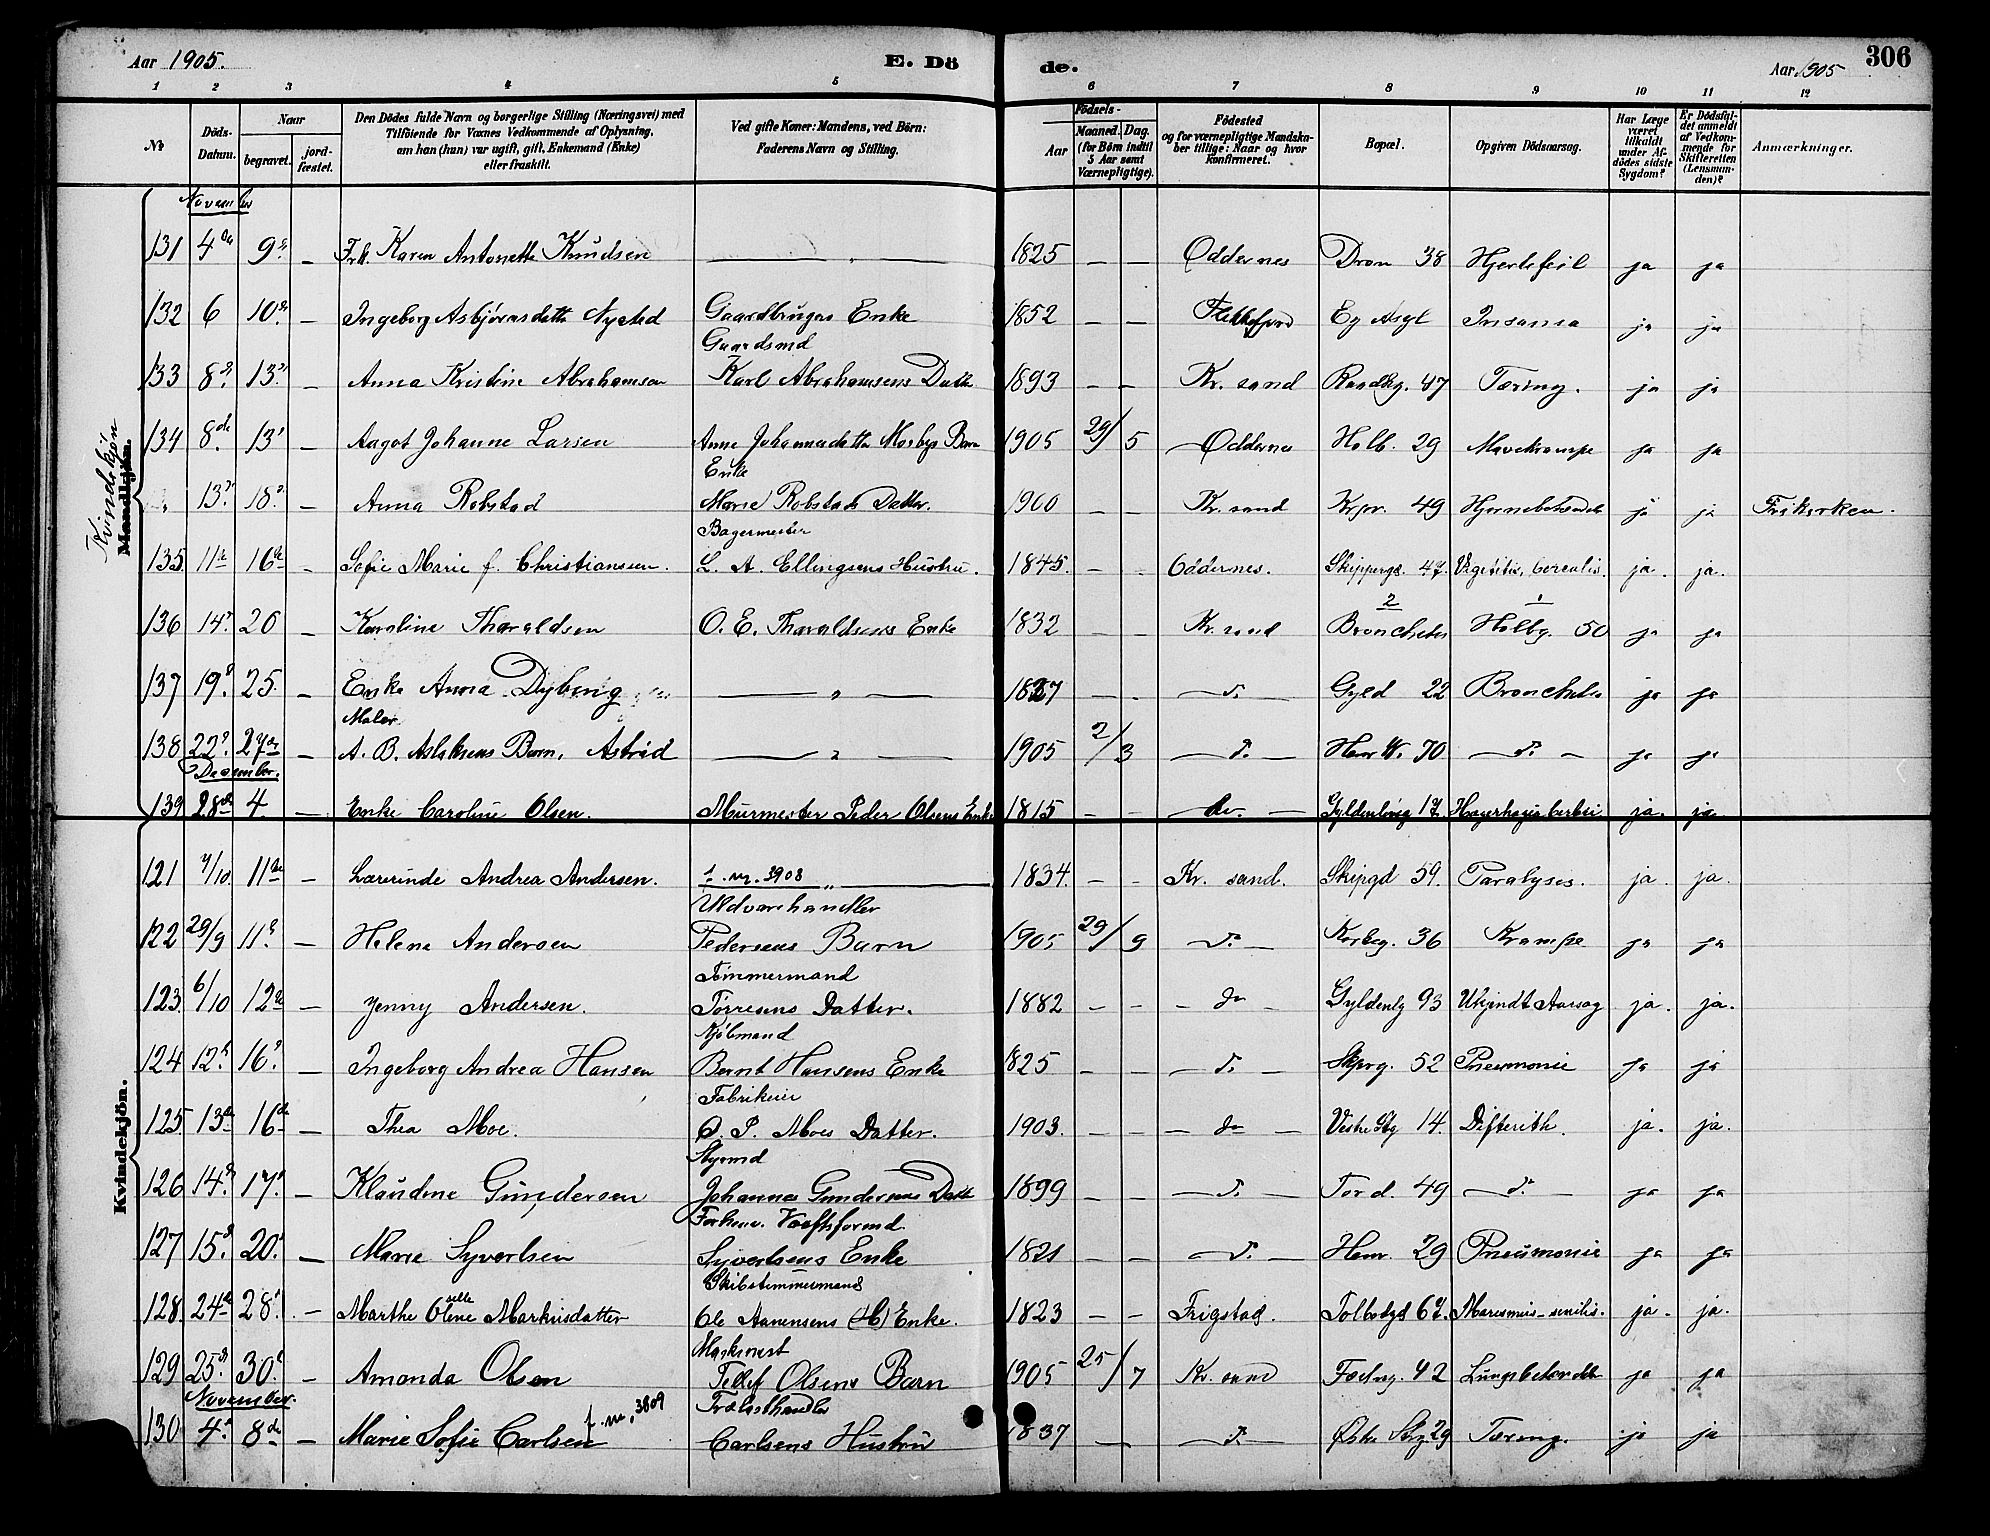 Aar 1905. E. Dö de. Aar 1905 306
1 2 3 4 5 6 7 8 9 10 11 12
No Döds-Datum. Naar begravet. jordfæstet. Den Dödes fulde Navn og borgerlige Stilling (Næringsvei) med Tilföiende for Voxnes Vedkommende af Oplysning, om han (hun) var ugift, gift, Enkemand (Enke) eller fraskilt. Ved gifte Koner: Mandens, ved Börn: Faderens Navn og Stilling. Födsels- Aar Maaned. Dag. (for Börn indtil 5 Aar samt Værnepligtige). Födested og for værnepligtige Mandskaber tillige: Naar og hvor konfirmeret. Bopæl. Opgiven Dödsaarsag. Har Læge været tilkaldt under Afdödes sidste Sygdom? Er Dödsfaldet anmeldt af Vedkommende for Skifteretten (Lensmanden)? Anmærkninger.
Kvindekjön
Mandkjön.
November
131 4de 9de — Frk. Karen Antonette Knudsen — " — 1825 — — Oddernes Dron 38 Hjertefeil ja ja
132 6 10de — Ingeborg Asbjörnsdatte Nysted Gaardbrugers Enke 1852 — — Flekkefjord Eg Asyl Insania ja ja
Gaardsmd
133 8de 13de — Anna Kristine Abrahamsen Karl Abrahamsens Datte 1893 — — Kr. sand Raadhg. 47 Tæring. ja ja
134 8de 13de — Aagot Johanne Larsen Anne Johannesdatte Mosbys Barn 1905 29/5 Oddernes Holb. 29 Mavekrampe ja ja
Enke
" 13de 18de — Anna Robstad Marie Robstads Datter. 1900 — — Kr. sand Krpr. 49 ja ja Frikirken.
Bagermester
135 11te 16de — Sofie Marie f. Christiansen. L. A. Ellingsens Hustru. 1845. — — Oddernes. Skippergd. 47. ja. ja.
136 14de 20 — Karoline Tharaldsen O. E. Tharaldsens Enke 1832 — — Kr. sand 2 Bronchites 1 Holbg. 50 ja ja
137 19de 25. — Enke Anna Dybing — " — 1827 — — — do — Gyld 22 Bronchites ja ja
Maler
138 22de 27de — A. B. Aslaksens Barn, Astrid — " — 1905 2/3 — do — Henr W. 70 — do — ja ja
December.
139 28de 4 — Enke Caroline Olsen. Murmester Peder Olsens Enke 1815 — — — do. — Gyldenlövsg 17. ja. ja
Kvindekjön.
121 7/10 11te — Lærerinde Andrea Andersen. f. m. 3908 " 1834. — — Kr. sand. Skipgd 59. Paralyses. ja. ja.
Uldvarehandler
122 29/9 11te — Helene Andersen Pedersens Barn 1905 29/9 — do — Korbeg. 36 Krampe ja ja
Tömmermand
123 6/10 12te — Jenny Andersen. Törresens Datter. 1882 — — — do Gyldenlg 93 Ukjendt Aarsag ja. ja.
Kjöbmand
124 12te 16de — Ingeborg Andrea Hansen Bernt Hansens Enke 1825 — — — do — Skprg. 52 Pneumonie ja ja
Fabrikeier
125 13de 16de — Thea Moe. O. P. Moes Datter. 1903. — — — do — Vestre Stg 14. Difterith. ja. ja.
Styrmd
126 14de 17de — Klaudine Gundersen Johannes Gundersens Datte 1899 — — — do — Tord. 49 — do — ja ja
Forhenv. Værftsformd.
127 15de 20de — Marie Syvertsen Syvertsens Enke 1821 — — — do — Henr. 29 Pneumonie ja ja
Skibstömmermand
128. 24de 28de — Marthe Oline Markusdatter Ole Aanensens Enke. 1823 — — Frigstad. Tolbodgd 67. Maresmus senilis. ja. ja.
Maskinist
129 25de 30te — Amanda Olsen Tellef Olsens Barn 1905 25/7 Kr. sand Festng. 42 Lungebetændelse ja ja
November. Trælasthandler
130 4de 8de — Marie Sofie Carlsen f. m. 3809 Carlsens Hustru 1837 — — do — Östre Stg 29 Tæring. ja ja